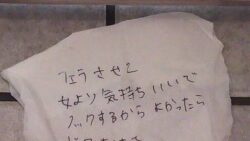 フェラさせて
女より気持ちいいで
ノックするから よかったら